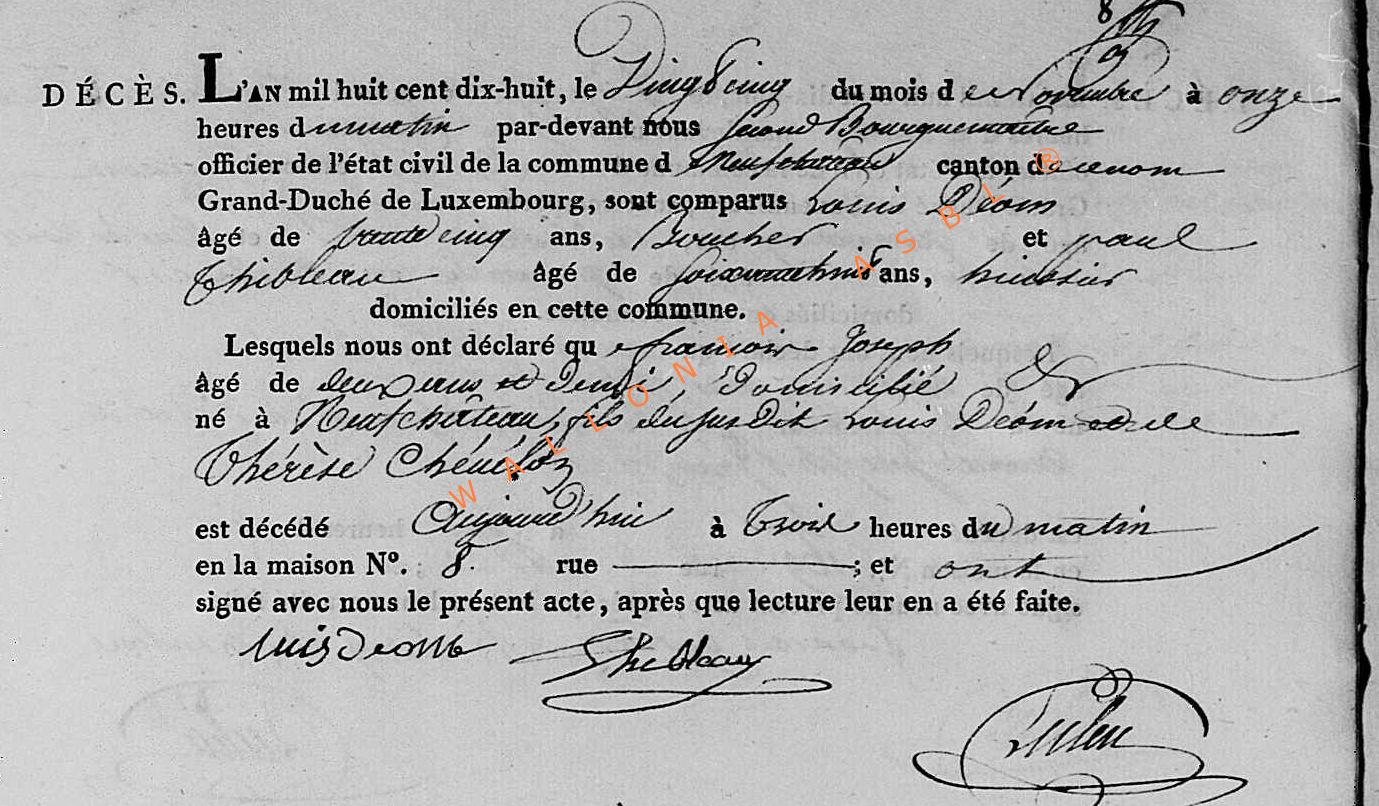 8
DÉCÈS. L'AN mil huit cent dix-huit, le Vingt cinq du mois de Novembre à onze
heures du matin par-devant nous second Bourguemaitre
officier de l'état civil de la commune de Neufchateau canton de ce nom
Grand-Duché de Luxembourg, sont comparus Louis Déom
âgé de trente cinq ans, Boucher et paul
Thibleau âgé de ans, huissier
domiciliés en cette commune.
Lesquels nous ont déclaré que francois Joseph
âgé de deux ans et demi, domicilié &
né à Neufchâteau, fils du susdit Louis Déom et de
Thérèse
est décédé Aujourd'hui à trois heures du matin
en la maison N°. 8. rue ; et ont
signé avec nous le présent acte, après que lecture leur en a été faite.
Luis Deom Thibleau
WALLONIA ASBL ®